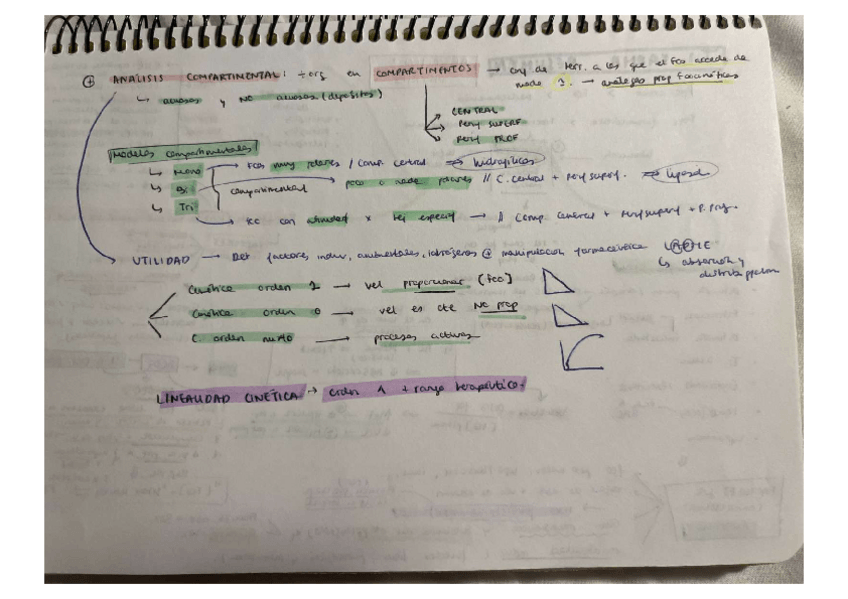 ANÁLISIS COMPARTIMENTAL: ÷ org en COMPARTIMENTOS → conj de terr. a los que el fco accede de
modo. → análogas prop fcocinéticas
↳ acuosos y NO acuosos (depósitos)
CENTRAL
Perif SUPERF
Perif PROF
Modelos compartimentales
↳ Mono → Fcos muy polares / Comp. central ⇒ hidrofílicos
↳ Bi compartimental → poco o nada polares // C. central + Perif superf. ⇒ liposol
↳ Tri → Fco con afinidad x tej especif → // Comp. central + Perif superf + P. Prof.
UTILIDAD → Det factores, indiv, ambientales, manipulación farmacéutica LADME
↳ absorción y
Cinética orden 1 → vel proporcional [fco]
Cinética orden 0 → vel es cte NO prop
C. orden mixto → procesos activos
LINEALIDAD CINÉTICA → orden 1 + rango terapéutico.